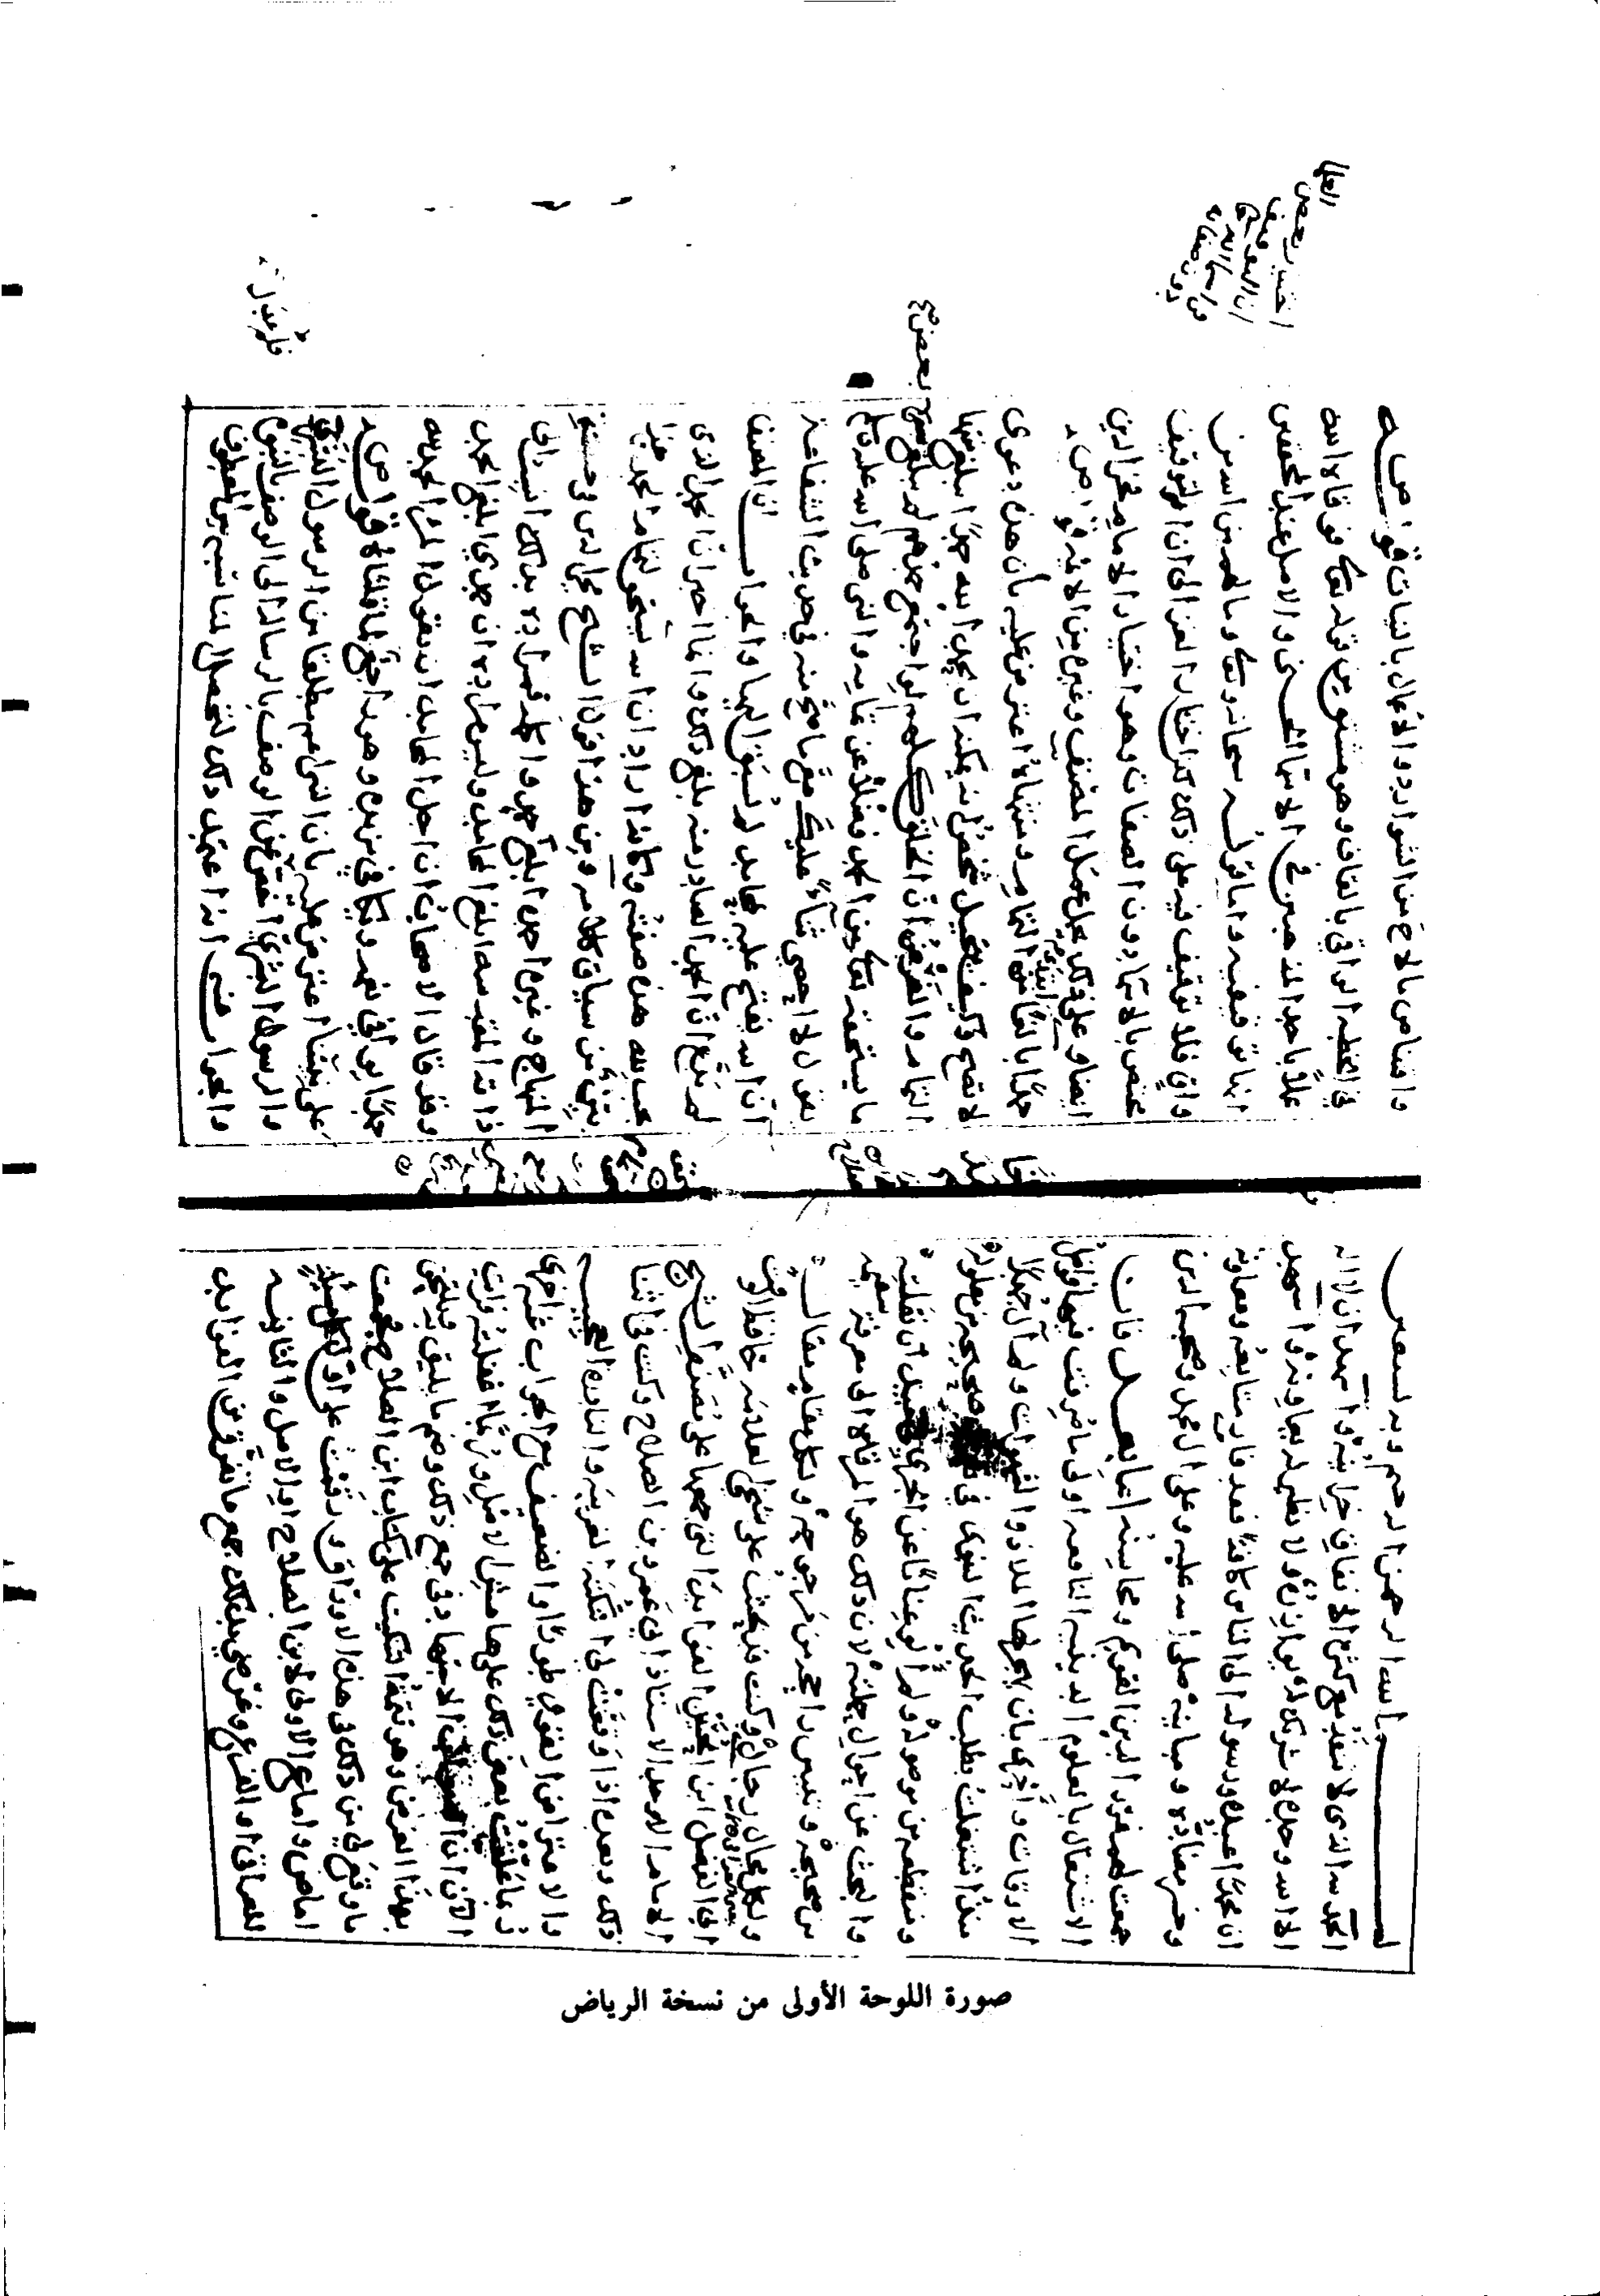 بسم الله الرحمن الرحيم وبه نستعين
الحمد لله الذي لا تنفد مع كثرة الانفاق خزاينه واشهد ان لا اله
الا الله وحده لا شريك له يوازره ولا نظير له يعاونه واشهد
ان محمدا عبده ورسوله الى الناس كافة فقد فاز متابعه ومعاونه
وخسر مضادده ومباينه صلى الله عليه وعلى آل محمد وصحبه الذين
جمعت لهم غرر الدين القويم ومحاسنه اما بعد فان
الاشتغال بالعلوم الدينيه النافعه اولى ما صرفت فيها فواضل
الاوقات واحرى بان يهجر لها الملاذ والشهوات ولم آل جهدا
منذ اشتغلت بطلب الحديث النبوي في صحيحه من معلوله
ومنقطعه من موصوله ولم ألو عنانا عن الجري في نقلته
والبحث عن احوال حملته لان ذلك هو المرقاة الى معرفة سقيمه
من صحيحه وتبيين راجحه من مرجوحه ولكل مقام مقال
ولكل مجال رجال وكنت قد بحثت على شيخي العلامه حافظ الوقت
ابي الفضل ابن الحسين الفوايد التي جمعها على مصنف الشيخ
الامام الاوحد الاستاذ ابي عمرو بن الصلاح وكنت في اثناء
ذلك وبعده اذا وقعت لي النكتة الغريبه والنادره العجيبه
والاعتراض القوي طورا والضعيف مع الجواب عنه اخرى
ربما علقت بعض ذلك على هامش الاصل وربما اغفلته فرايت
الان ان الاجتهاد في جمع ذلك وضم ما يليق ويلتحق
بهذا الغرض وهو تتمة التنكيت على كتاب ابن الصلاح فجمعت
ما وقع لي من ذلك في هذه الاوراق ورقمت على اول كل مسئلة
اما ص واما ع الاولى لابن الصلاح او الاصل والثانيه
للعراقي او الفرع وغرضي بذلك جمع ما تفرق من الفوايد
واقتناص ما لاح من الشوارد والاعمال بالنيات قوله ص
في الخطبه الواقي بالقاف وهو مشتق من قوله تعالى فوقاه الله
عملا باحد المذهبين في الاسماء الحسنى والاصح عند المحققين
انها توقيفيه واما قوله سبحانه وتعالى وما لهم من الله من
واق فلا توقيف فيه على ذلك لكن اختار الغزالي ان التوقيف
مختص بالاسماء دون الصفات وهو اختيار الامام فخر الدين
ايضا وعلى ذلك يحمل عمل المصنف وغيره من الائمه قوله ص
حمدا بالغا امد التمام ومنتهاه اعترض عليه بأن هذه دعوى
لا تصح وكيف يتخيل شخص انه يمكنه ان يحمد الله حمدا يبلغ منتها
التمام والفرض ان الخلق كلهم لو اجتمع حمدهم لم يبلغ بعض
ما يستحقه تعالى من الحمد فضلا عن تمامه والنبي صلى الله عليه وسلم
يقول لا احصي ثناء عليك مع ما صح عنه في حديث الشفاعة
ان الله يفتح عليه بمحامد لم يسبق اليها والجواب ان المصنف
لم يدع ان الحمد الصادر منه بلغ ذلك وانما اخبر ان الحمد الذي
يجب لله هذه صفته وكانه اراد ان الله مستحق لتمام الحمد وهذا
بين من سياق كلامه ومن هذا قول الشيخ محي الدين في
المنهاج وغيره احمده ابلغ حمد واكمله فمراده بذلك انسب الى
ذاته المقدسه ابلغ المحامد وليس مراده ان حمدي ابلغ الحمد
وقد قال الاصحاب ان اجل المحامد ان يقول المرء الحمد لله
حمدا يوافي نعمه ويكافي مزيده وهو راجع لما قلناه قوله ص
على نبينا اعترض عليه بان النبي اعم مطلقا من الرسول البشري
والرسول البشري اخص الوصف بالرسالة الى الوصف بالنبوة
والجواب عنه انه
اختيار بعض العلما
ان التوقيف
بعض صح
فلم عدل
صورة اللوحة الأولى من نسخة الرياض